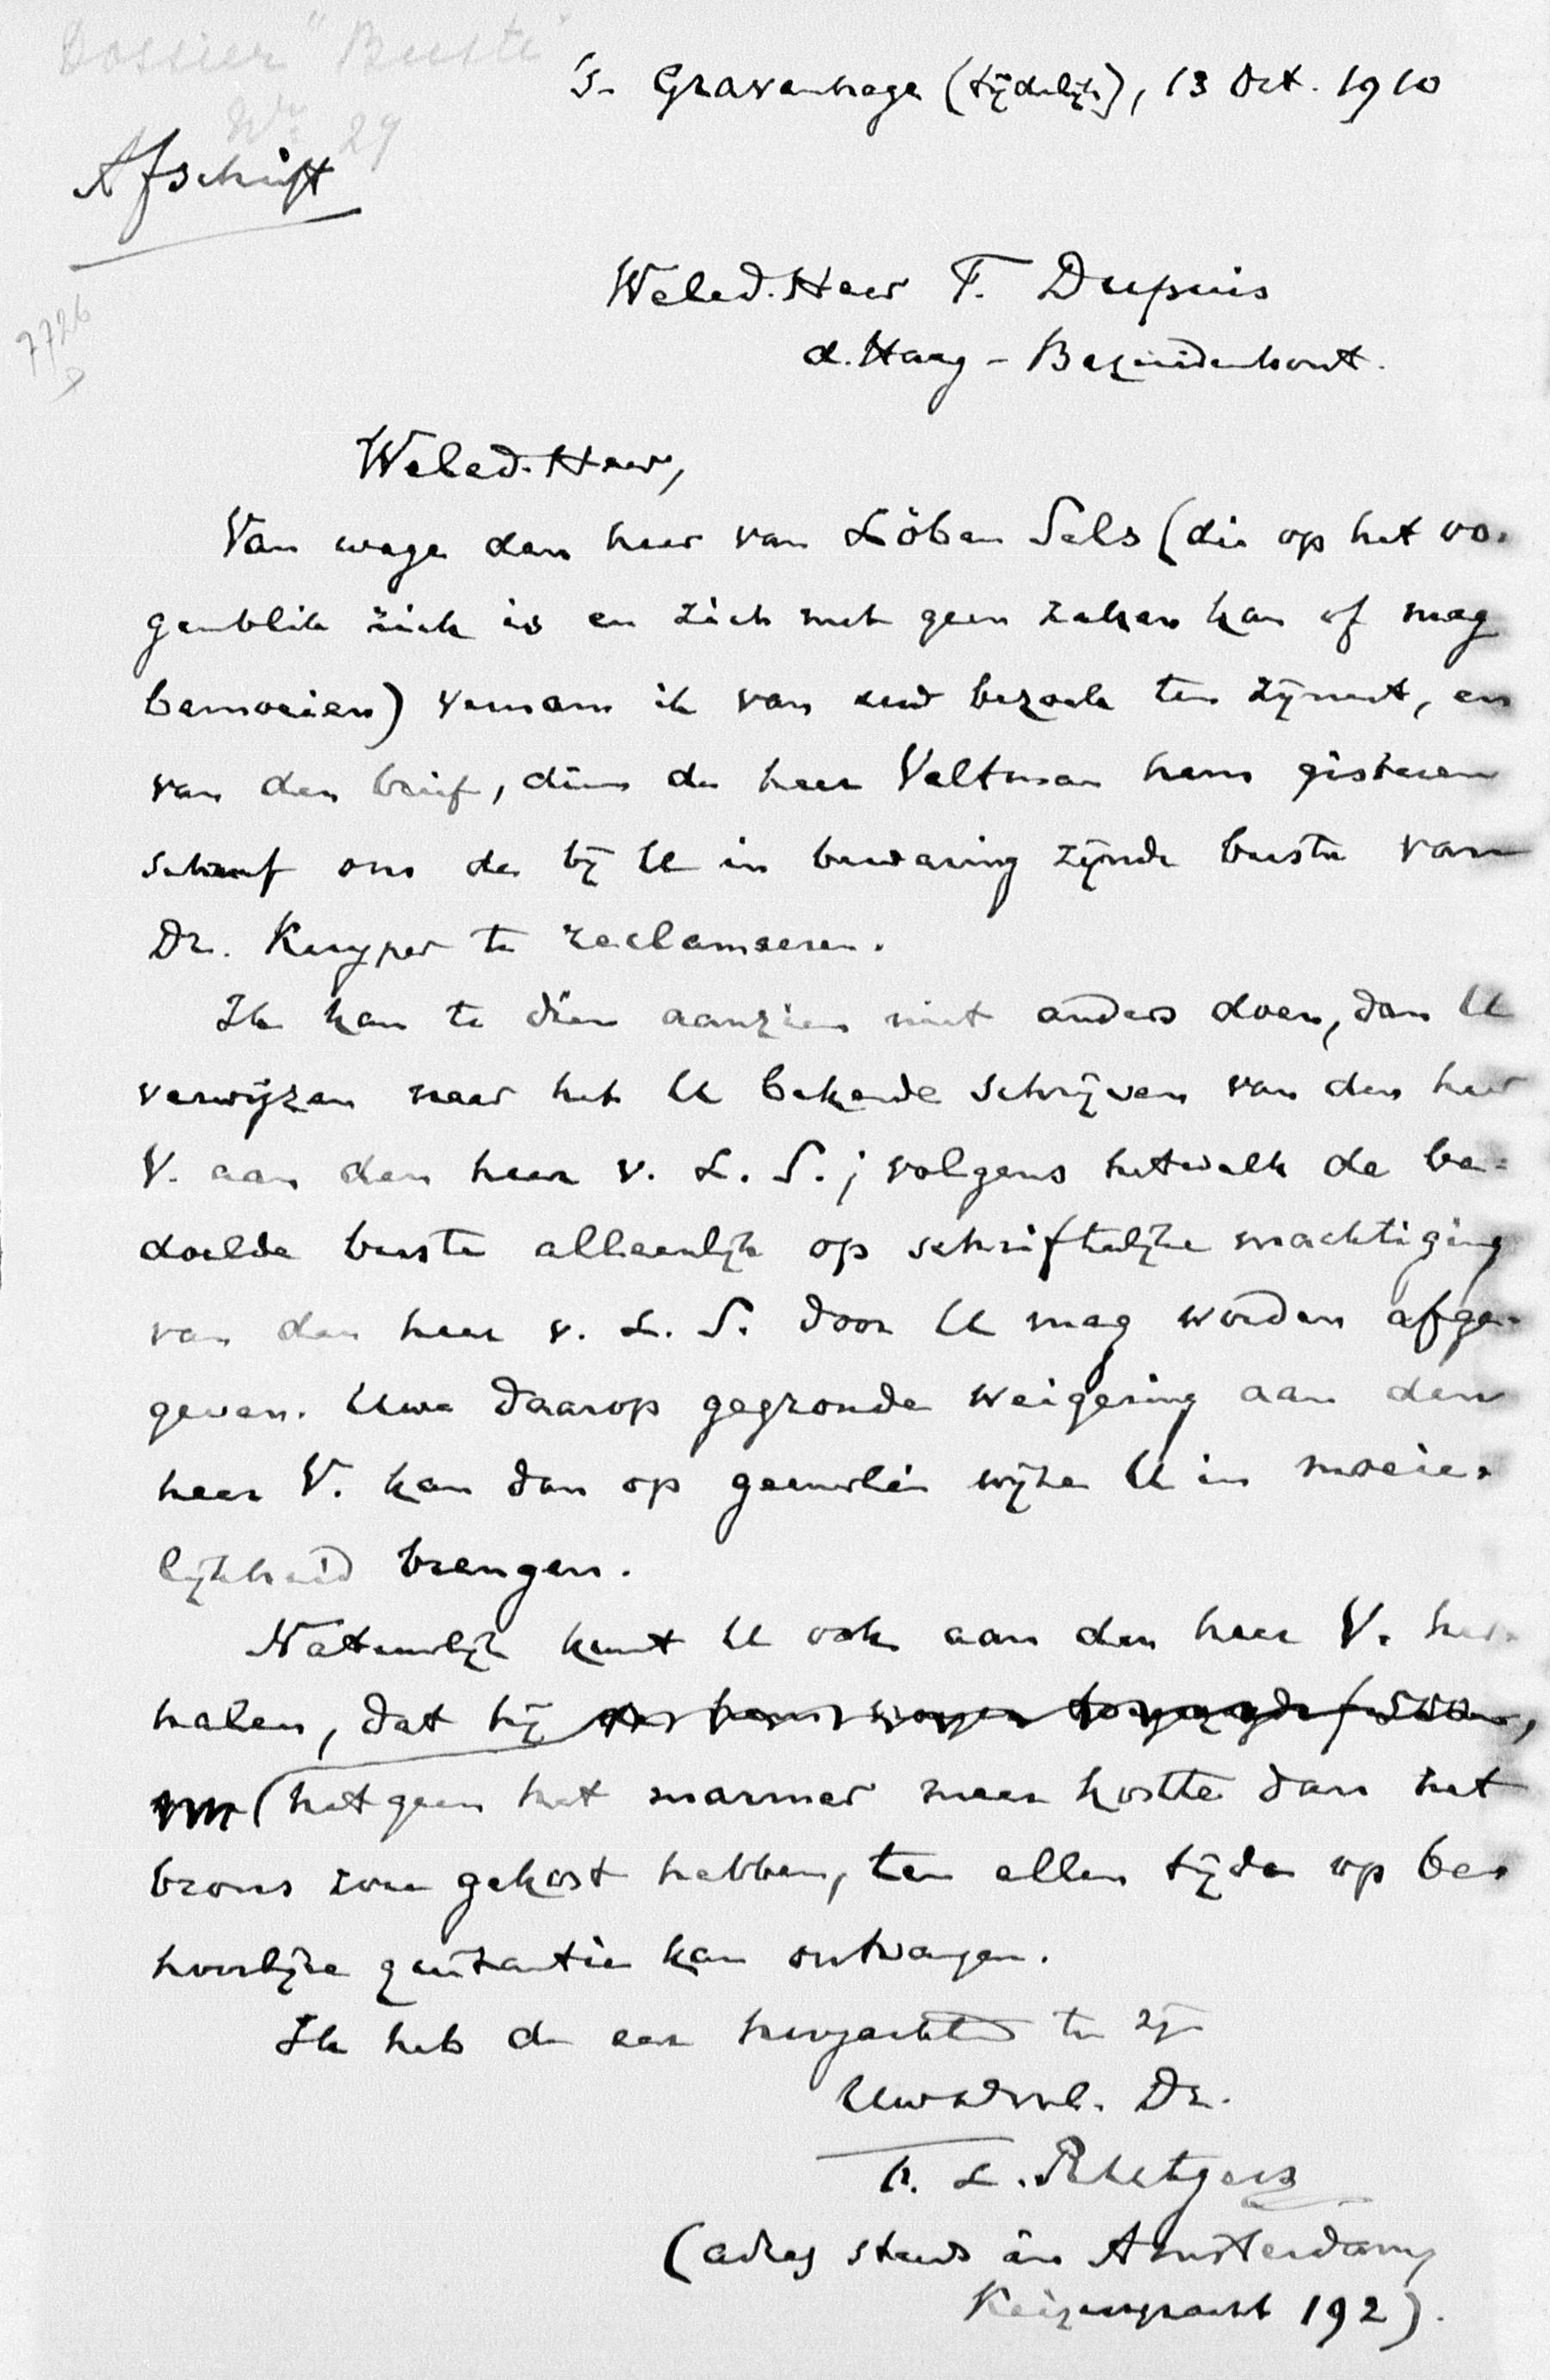 Dossier "Buste"
No 29
's-Gravenhage (tijdelijk), 13 Oct. 1910
Afschrift
7726
Weled. Heer F. Dupuis
d. Haag - Bezuidenhout.
Weled. Heer,
Van wege den heer van Löben Sels (die op het oo-
genblik ziek is en zich met geen zaken kan of mag
bemoeien) vernam ik van uw bezoek ten zijnent, en
van den brief, dien de heer Veltman hem gisteren
schreef om de bij U in bewaring zijnde buste van
Dr. Kuyper te reclameeren.
Ik kan te dien aanzien niet anders doen, dan U
verwijzen naar het U bekende schrijven van den heer
V. aan den heer v. L. S.; volgens hetwelk de be-
doelde buste alleenlijk op schriftelijke machtiging
van den heer v. L. S. door U mag worden afge-
geven. Uwe daarop gegronde weigering aan den
heer V. kan dan op geenerlei wijze U in moeie-
lijkheid brengen.
Natuurlijk kunt U ook aan den heer V. her-
halen, dat hij
hetgeen het marmer meer kostte dan het
brons zou gekost hebben, ten allen tijde op be-
hoorlijke quitantie kan ontvangen.
Ik heb de eer hoogachtend te zijn
Uw dw. Dr.
F. L. Rutgers
(adres steeds in Amsterdam,
Keizersgracht 192).